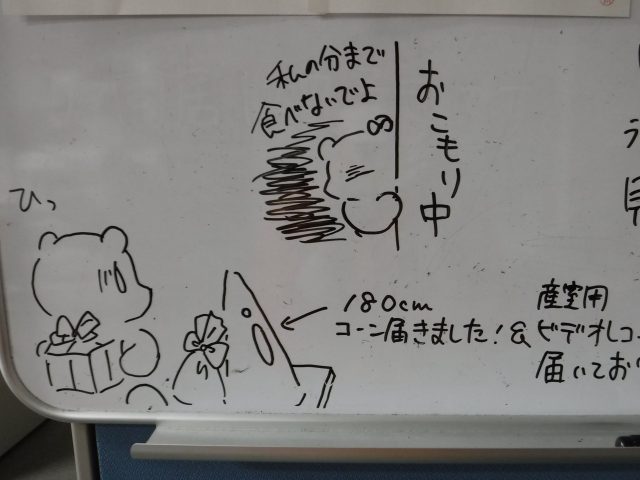 私の分まで
食べないでよ
おこもり中
ひっ
180cm
コーン届きました!&
産室用
ビデオレコ
届いてお